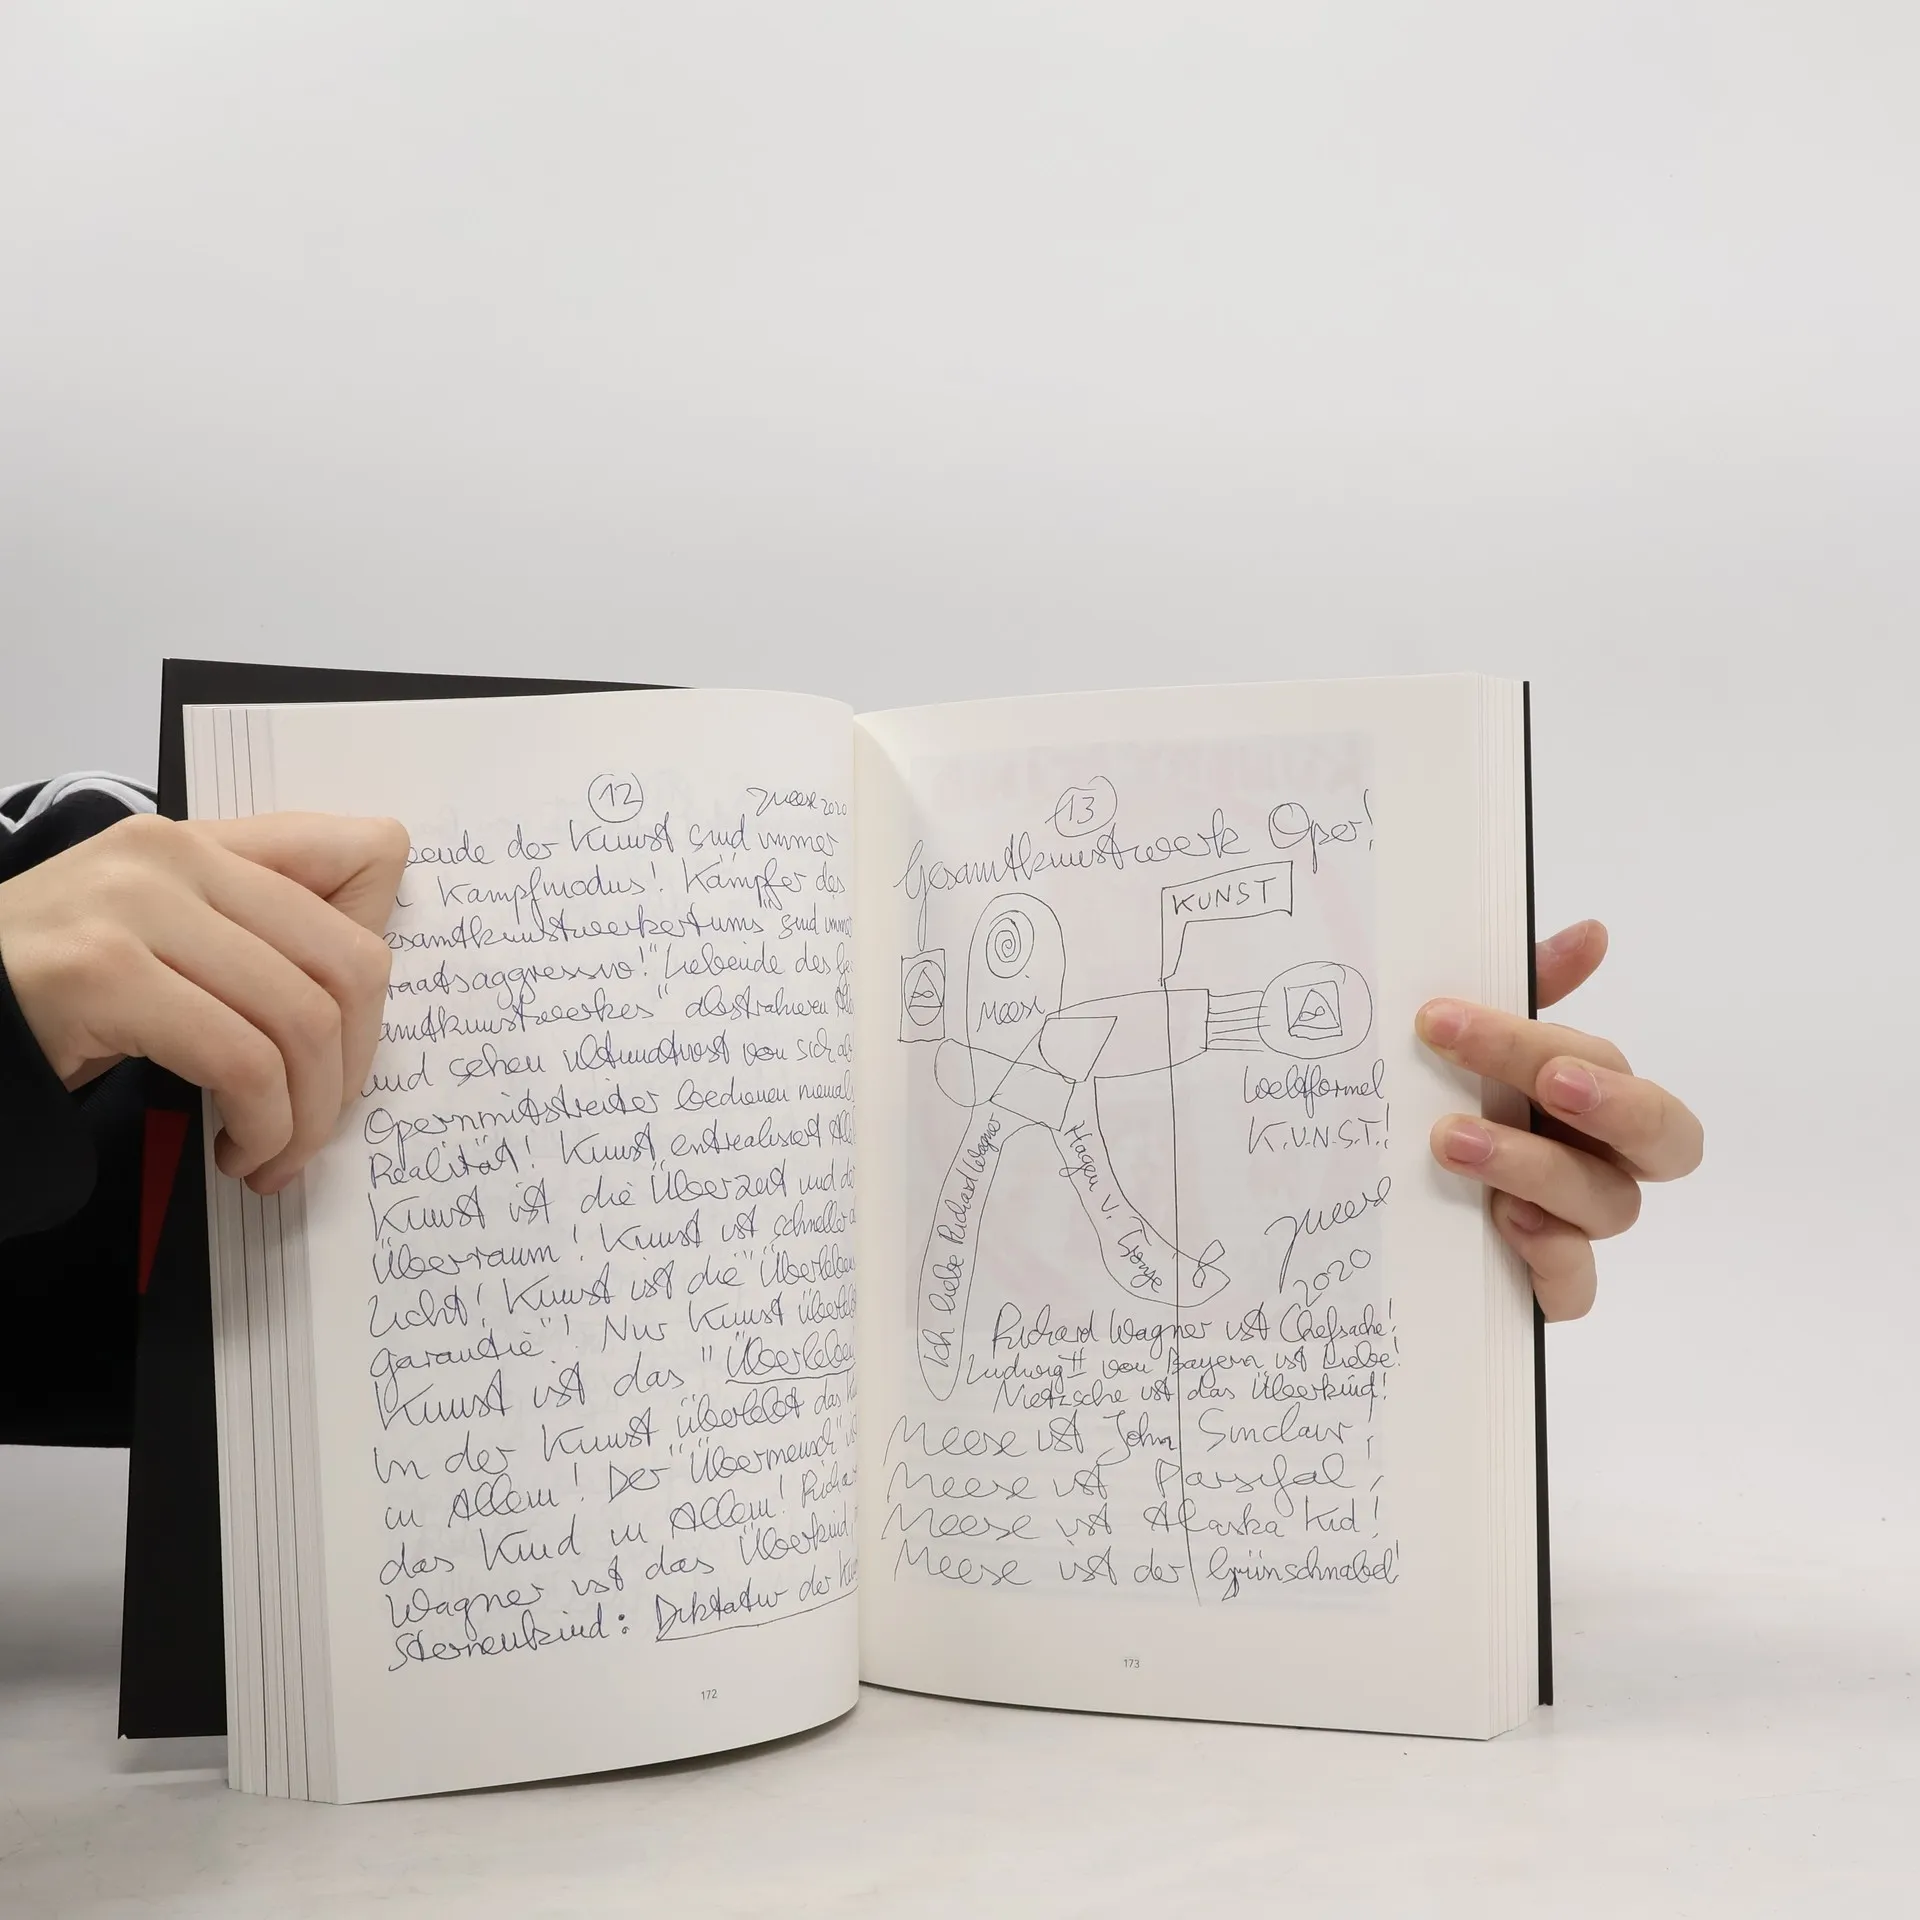 12
Meese 2020
der Kunst sind immer
Kampfmodus! Kämpfer des
samtkunstwerkertums" sind
raatsaggressiv!" Liebende des
amtkunstwerkes" abstrahieren
und sehen ultimativst von sich ab
Opernmitstreiter bedienen niemals
Realität! Kunst entrealisiert
Kunst ist die Überzeit und
Überraum! Kunst ist schneller
Licht! Kunst ist die "Überleben
garantie"! Nur Kunst
Kunst ist das "Überleben
in der Kunst überlebt das
in Allem! Der "Übermensch"
das Kind in Allem! Richa
Wagner ist das Überkind,
Sternenkind: Diktatur der
172
13
Gesamtkunstwerk Oper!
KUNST
Meese
Weltformel
K.U.N.S.T.!
Ich liebe Richard Wagner
Hagen v. Tronje
Meese
2020
Richard Wagner ist Chefsache!
Ludwig II von Bayern ist Liebe!
Nietzsche ist das Überkind!
Meese ist John Sinclair!
Meese ist Parsifal!
Meese ist Alaska Kid!
Meese ist der Grünschnabel!
173